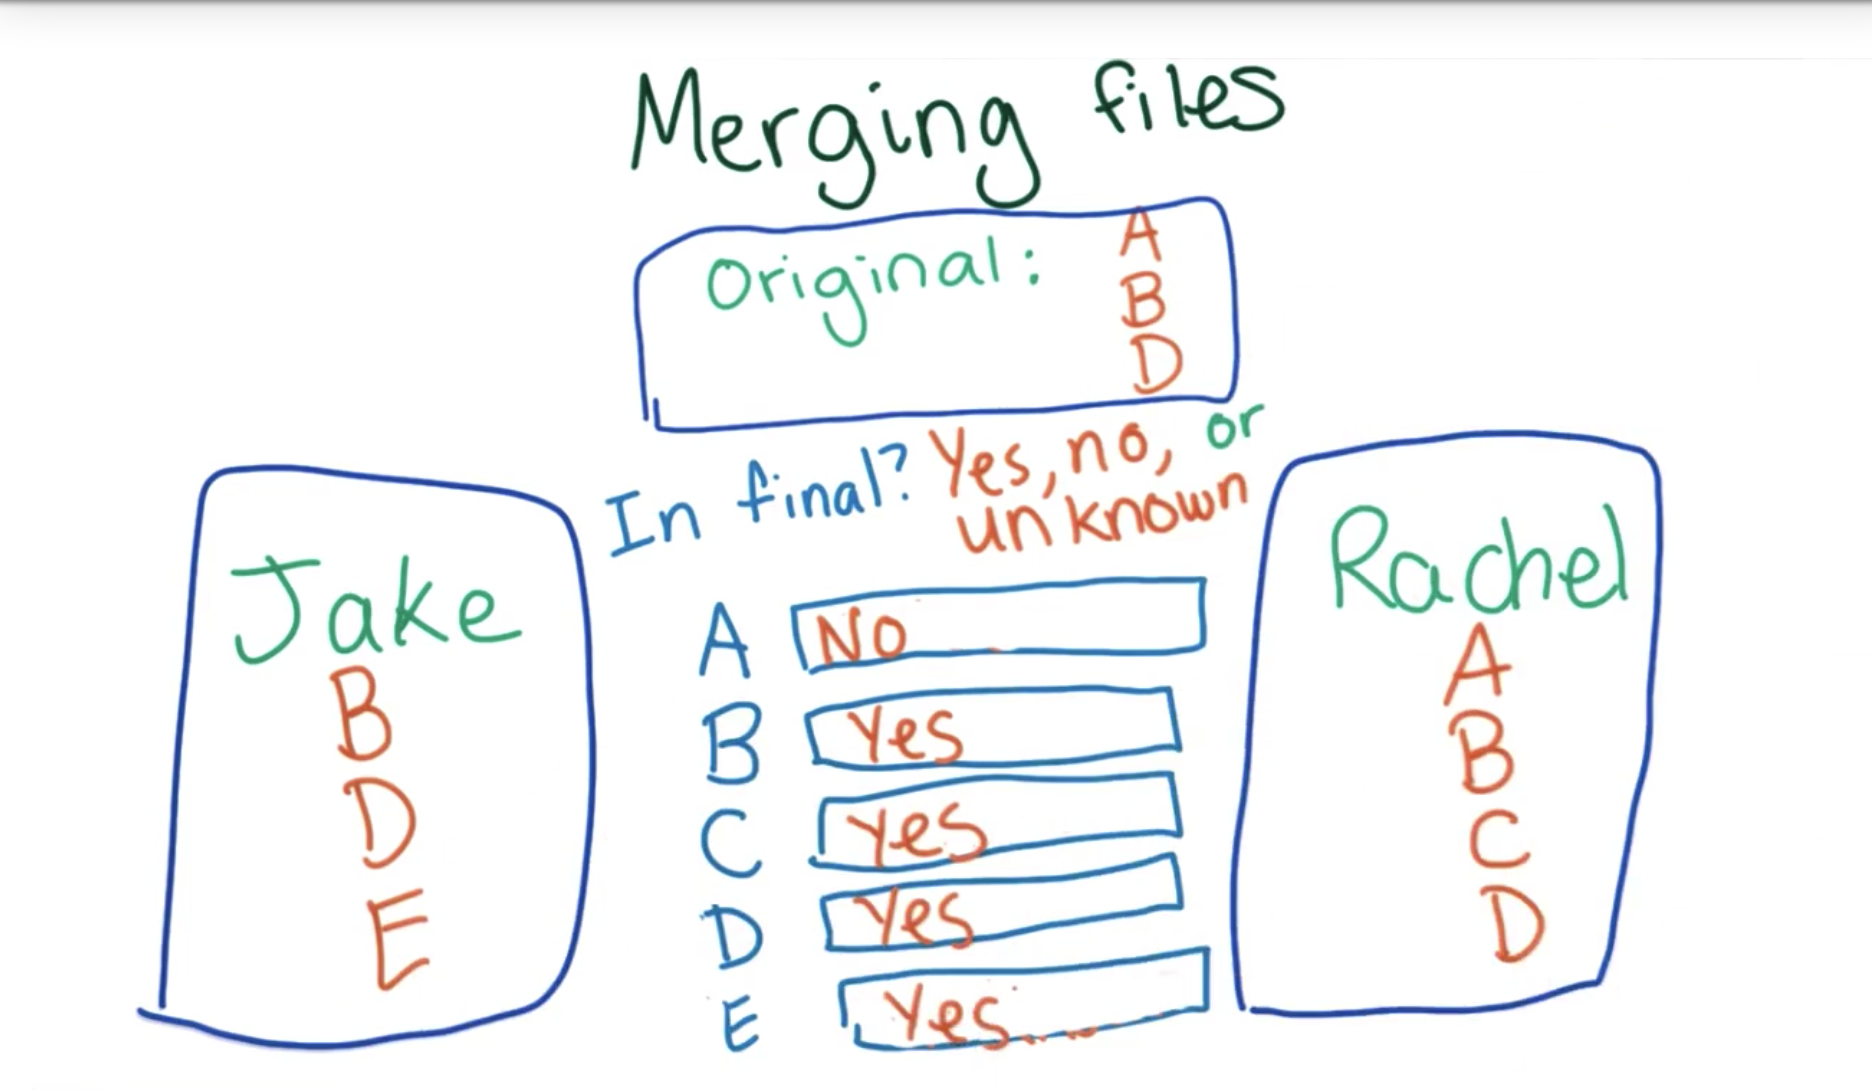 Merging files
Original:
A
B
D
In final? Yes, no, or
unknown
Jake
B
D
E
A No
B Yes
C Yes
D Yes
E Yes
Rachel
A
B
C
D